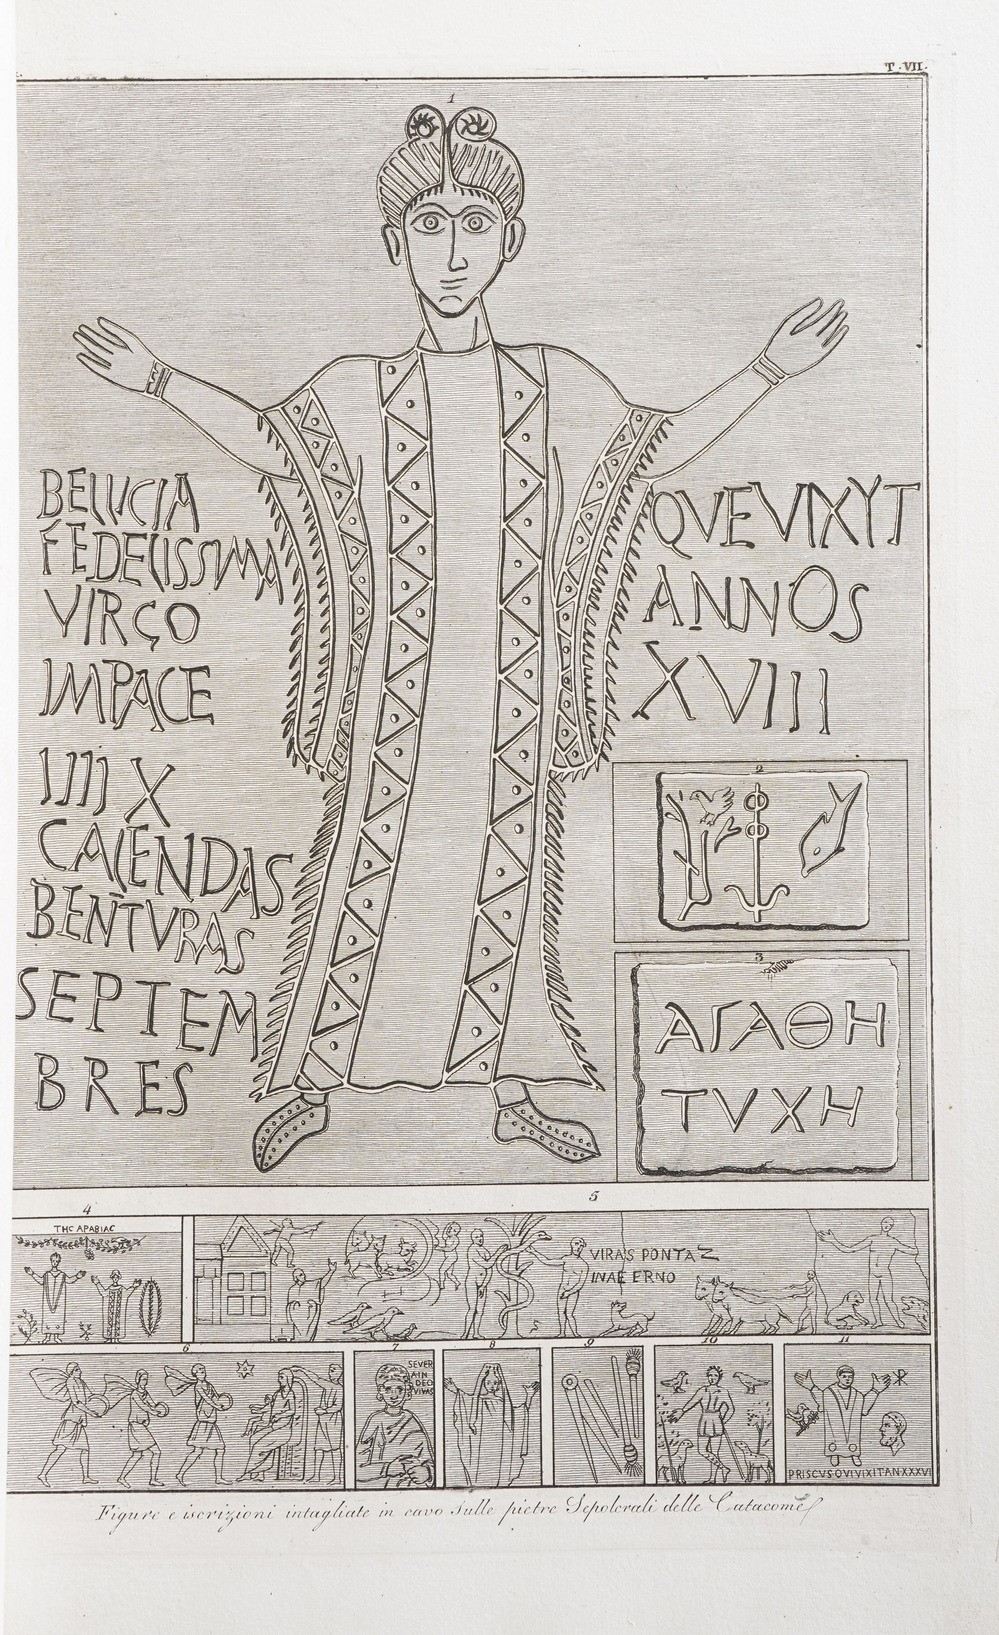 T. VII.
1
BELLICIA
FEDELISSIMA
VIRGO
IMPACE
IIII X
CALENDAS
BENTVRAS
SEPTEM
BRES
QVE VIXYT
ANNOS
XVIII
2
3
ΑΓΑΘΗ
ΤVΧΗ
4
THC APABIAC
5
VIRAS PONTAZ
INAE ERNO
6
7
SEVER
A IN DEO
VIVAS
8
9
10
11
PRISCVS QVI VIXIT AN XXXVI
Figure e iscrizioni intagliate in cavo sulle pietre Sepolcrali delle Catacome